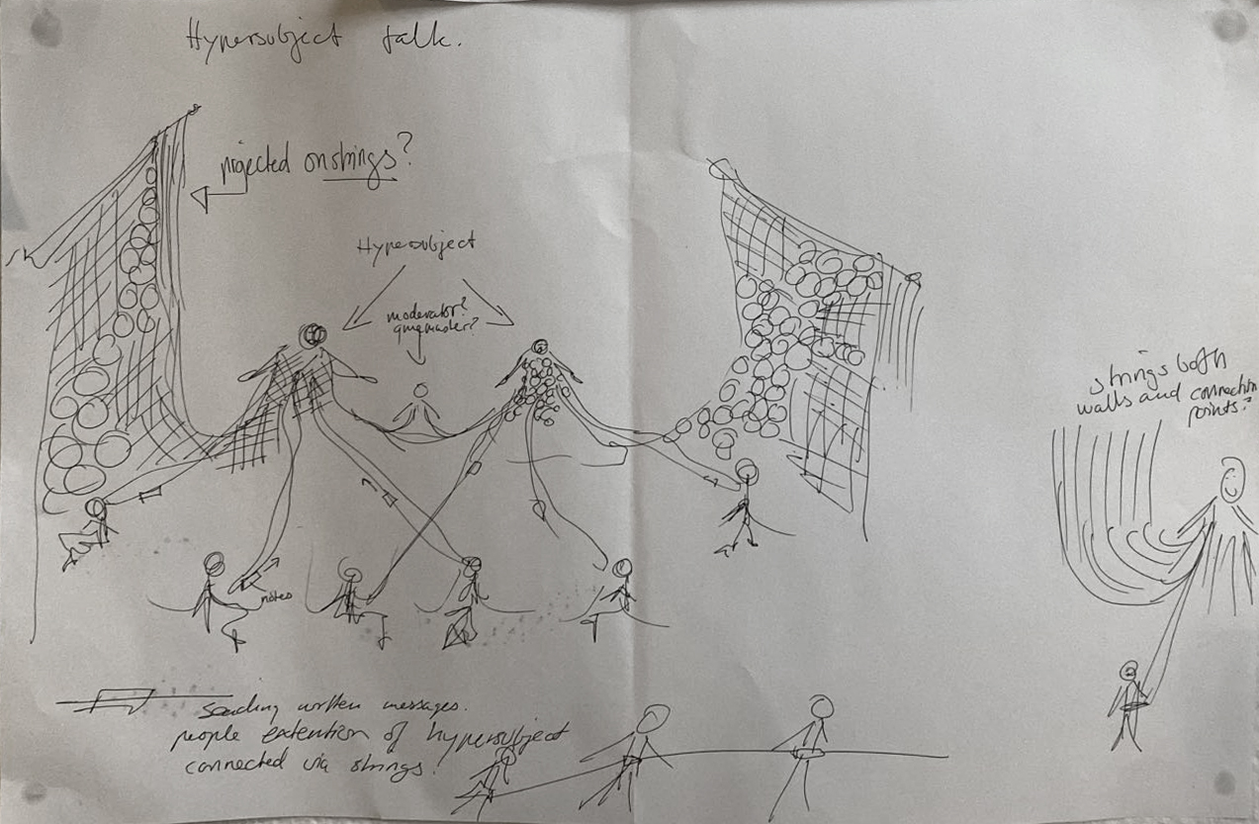 Hypersubject talk.
projected on strings?
Hypersubject
moderator?
gamemaster?
strings both
walls and connection
points?
notes
Sending written messages.
people extention of hypersubject
connected via strings!